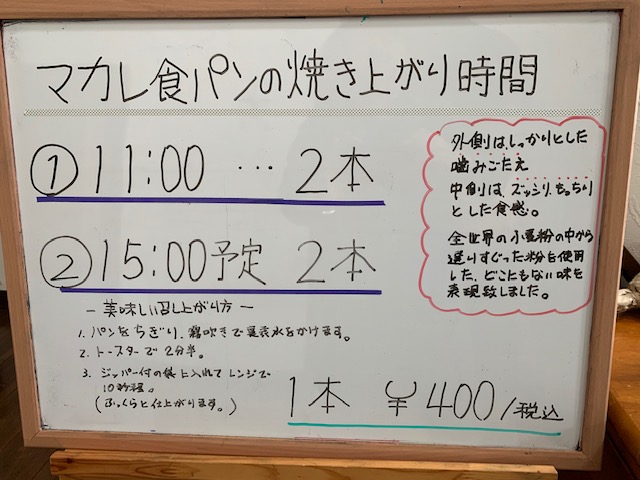 マカレ食パンの焼き上がり時間
① 11:00 … 2本
② 15:00予定 2本
外側はしっかりとした
噛みごたえ
中側はズッシリ、もっちり
とした食感。
全世界の小麦粉の中から
選りすぐった粉を使用
した、どこにもない味を
表現致しました。
－美味しい召し上がり方－
1. パンをちぎり、霧吹きで裏表水をかけます。
2. トースターで2分半。
3. ジッパー付の袋に入れてレンジで
10秒程。
(ふっくらと仕上がります。)
1本 ¥400/税込